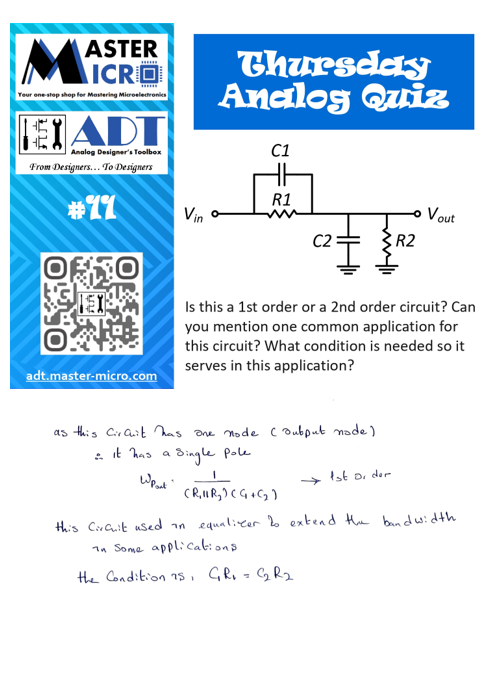 MASTER
MICRO
Your one-stop shop for Mastering Microelectronics
ADT
Analog Designer's Toolbox
From Designers... To Designers
#99
adt.master-micro.com
Thursday
Analog Quiz
C1
R1
Vin
Vout
C2
R2
Is this a 1st order or a 2nd order circuit? Can
you mention one common application for
this circuit? What condition is needed so it
serves in this application?
as this circuit has one node (output node)
∴ it has a single pole
Wpout = 1 / (R1||R2)(C1+C2) → 1st order
this circuit used in equalizer to extend the bandwidth
in some applications
the condition is, C1R1 = C2R2